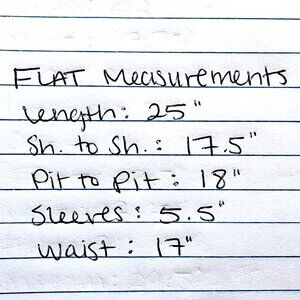 FLAT Measurements
Length: 25"
Sh. to Sh.: 17.5"
Pit to Pit: 18"
Sleeves: 5.5"
Waist: 17"